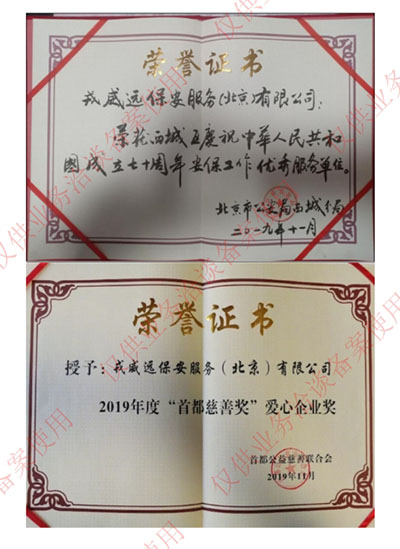 荣誉证书
戎威远保安服务(北京)有限公司:
荣获西城区庆祝中华人民共和
国成立七十周年安保工作优秀服务单位。
北京市公安局西城分局
二〇一九年十一月
荣誉证书
授予:戎威远保安服务(北京)有限公司
2019年度“首都慈善奖”爱心企业奖
首都公益慈善联合会
2019年11月
仅供业务洽谈备案使用